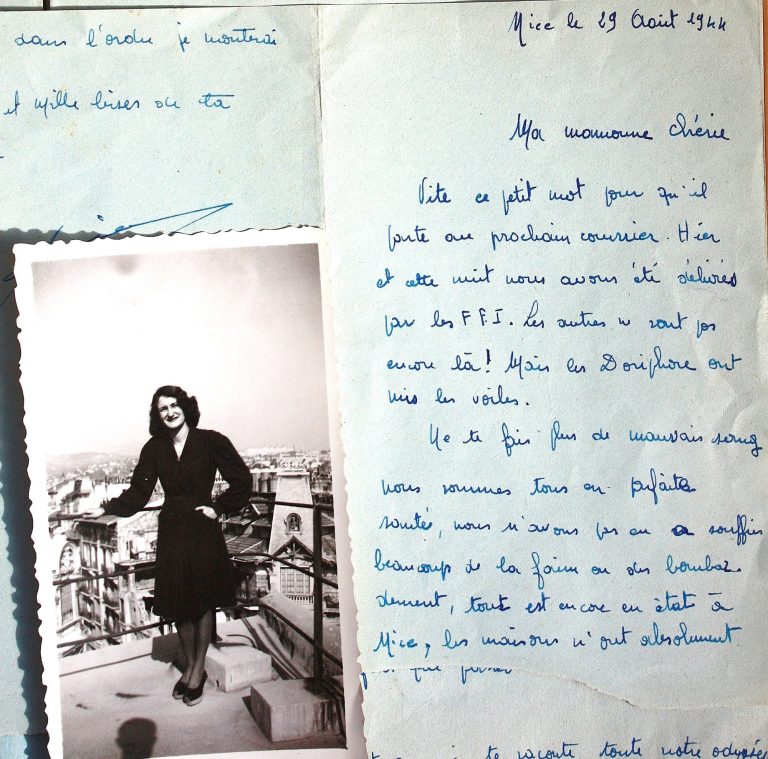 dans l'ordre je monterai
et mille bises de ta
Nice le 29 Août 1944
Ma mamoune chérie
Vite ce petit mot pour qu'il
parte au prochain courrier. Hier
et cette nuit nous avons été délivrés
par les F.F.I. Les autres ne sont pas
encore là! Mais les Doriphore ont
mis les voiles.
Ne te fais plus de mauvais sang
nous sommes tous en parfaite
santée, nous n'avons pas eu a souffrir
beaucoup de la faim ou des bombar-
dement, tout est encore en états à
Nice, les maisons n'ont absolument
te raconte toute notre odyssée